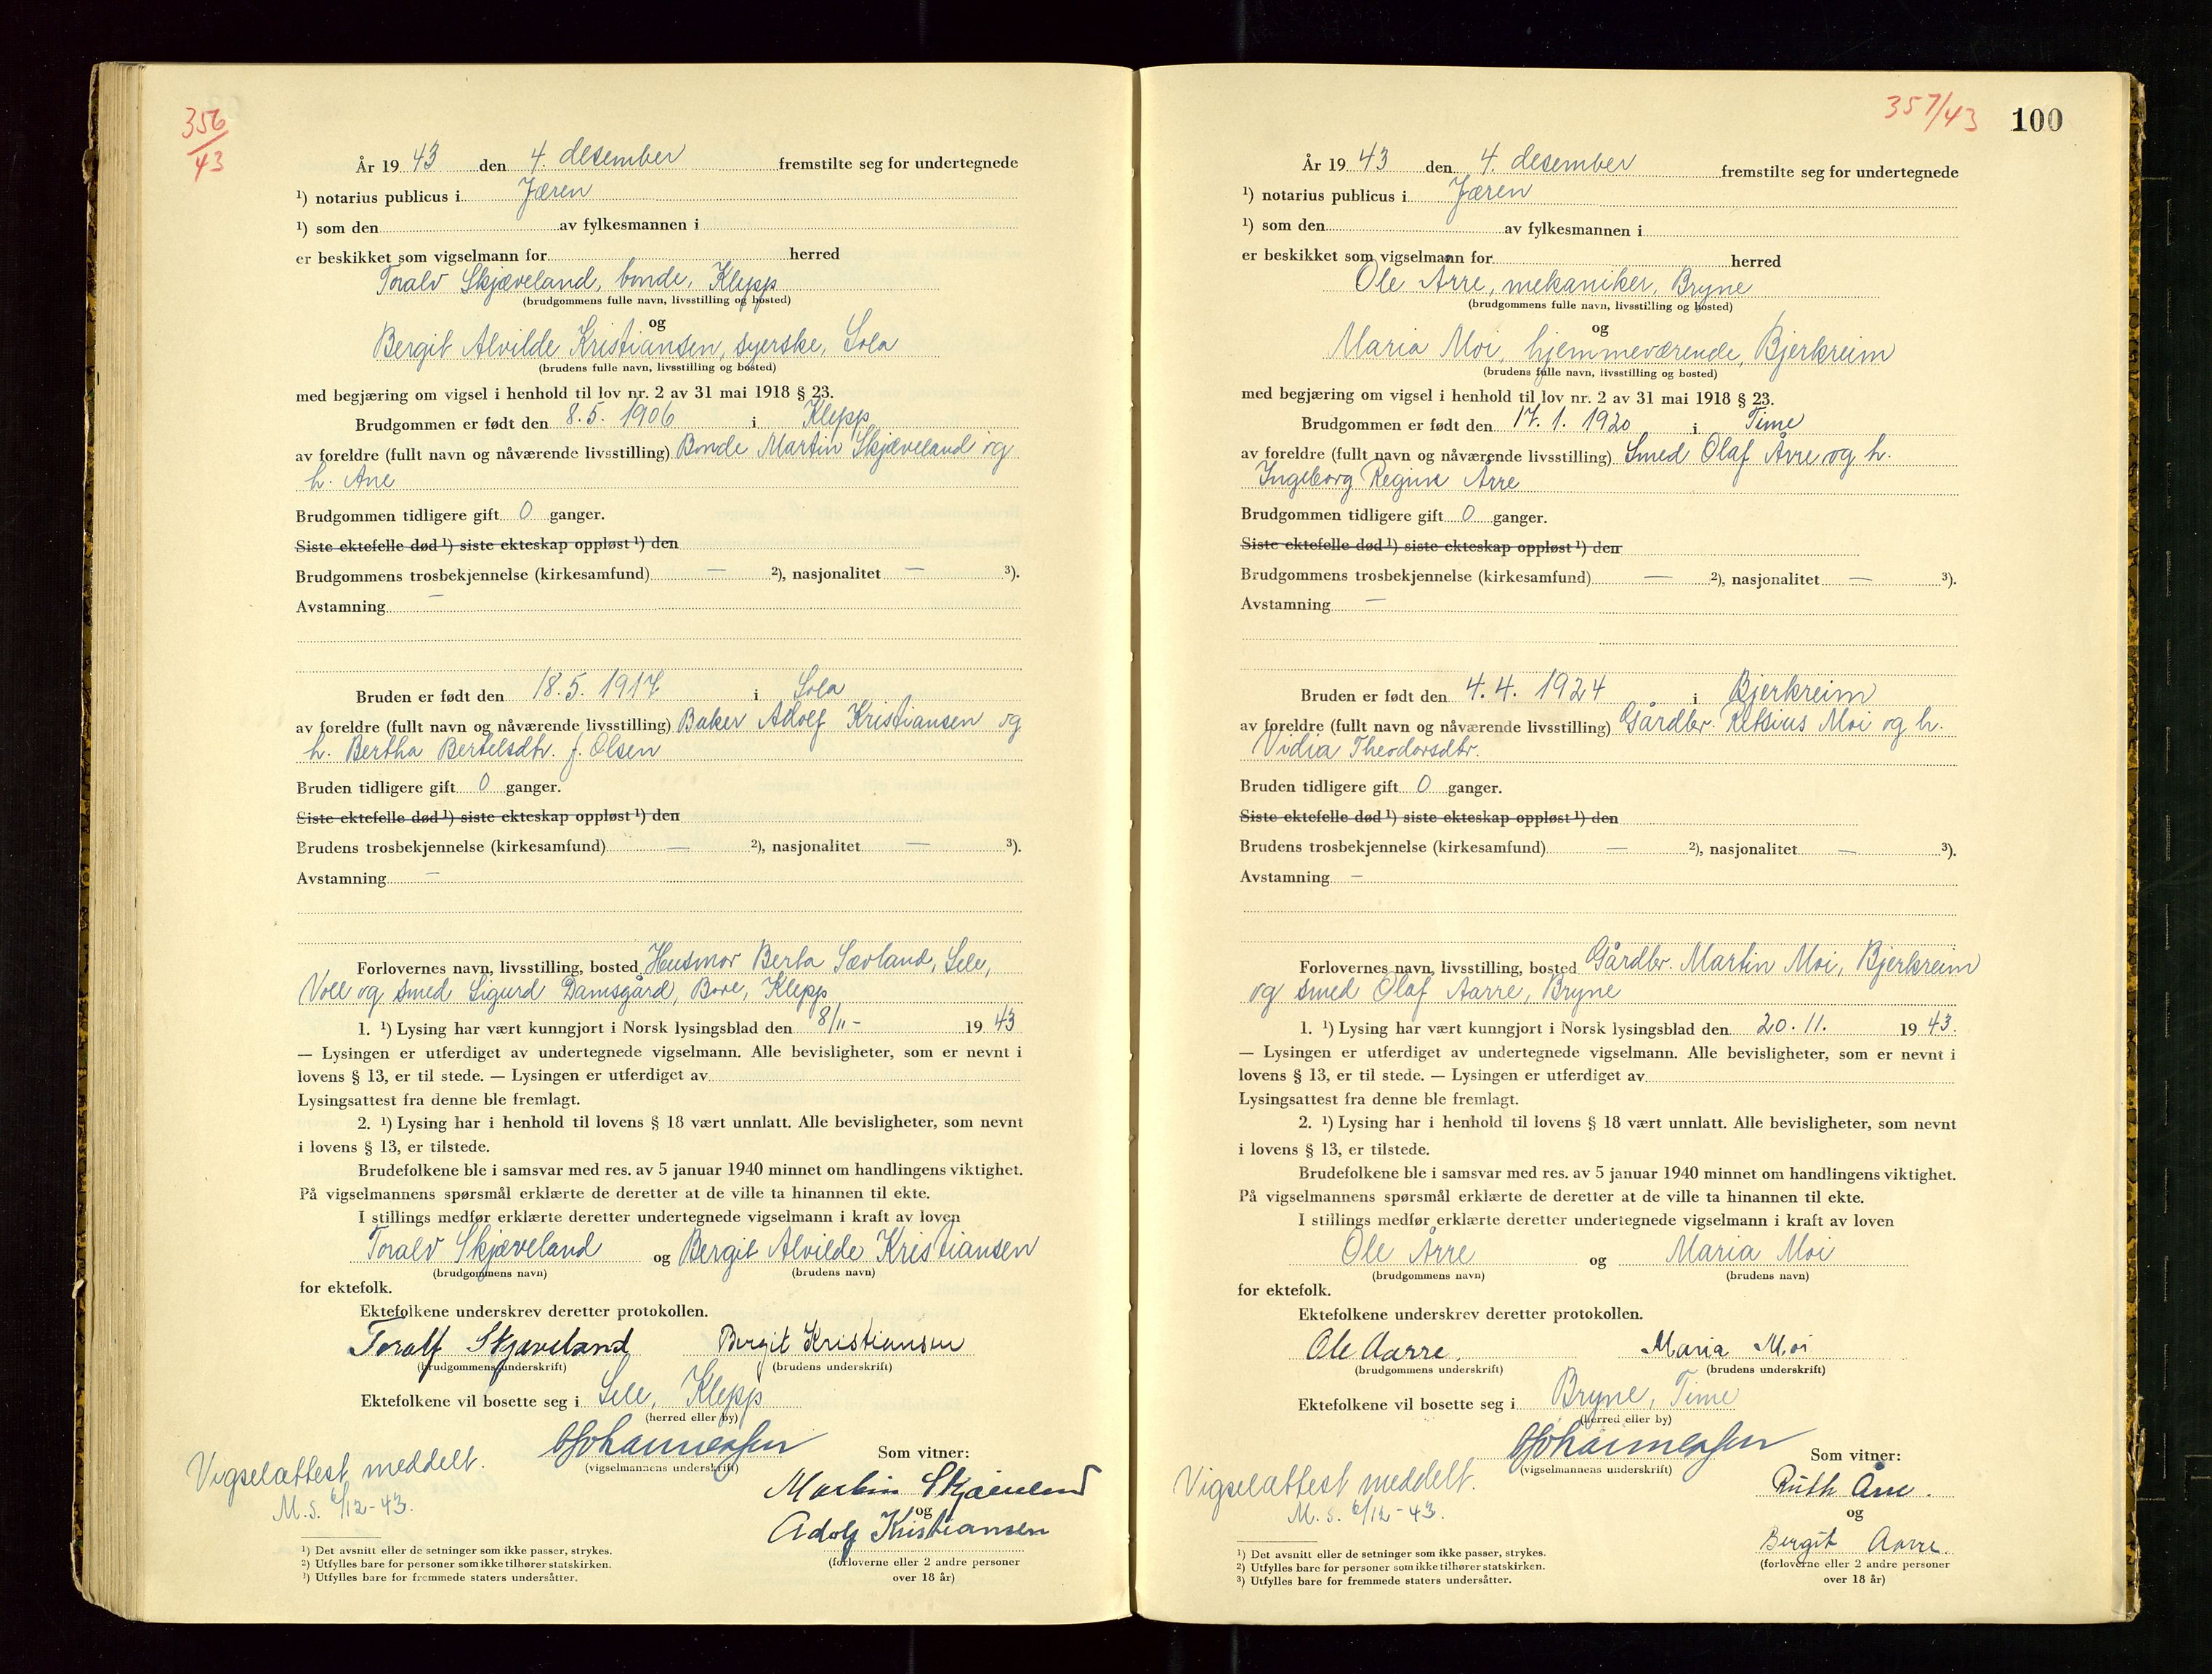 356
43
År 19 43 den 4. desember fremstilte seg for undertegnede
¹) notarius publicus i Jæren
¹) som den av fylkesmannen i
er beskikket som vigselmann for herred
Toralv Skjæveland, bonde, Klepp
(brudgommens fulle navn, livsstilling og bosted)
og
Bergit Alvilde Kristiansen, syerske, Sola
(brudens fulle navn, livsstilling og bosted)
med begjæring om vigsel i henhold til lov nr. 2 av 31 mai 1918 § 23.
Brudgommen er født den 8.5. 1906 i Klepp
av foreldre (fullt navn og nåværende livsstilling) Bonde Martin Skjæveland og
h. Ane
Brudgommen tidligere gift 0 ganger.
Siste ektefelle død ¹) siste ekteskap oppløst ¹) den
Brudgommens trosbekjennelse (kirkesamfund) — ²), nasjonalitet — ³).
Avstamning —
Bruden er født den 18.5. 1917 i Sola
av foreldre (fullt navn og nåværende livsstilling) Baker Adolf Kristiansen og
h. Bertha Bertelsdtr. f. Olsen
Bruden tidligere gift 0 ganger.
Siste ektefelle død ¹) siste ekteskap oppløst ¹) den
Brudens trosbekjennelse (kirkesamfund) — ²), nasjonalitet — ³).
Avstamning —
Forlovernes navn, livsstilling, bosted Husmor Berta Sævland, Sele,
Voll og smed Sigurd Damsgård, Bore, Klepp
1. ¹) Lysing har vært kunngjort i Norsk lysingsblad den 8/11 - 19 43
— Lysingen er utferdiget av undertegnede vigselmann. Alle bevisligheter, som er nevnt i
lovens § 13, er til stede. — Lysingen er utferdiget av
Lysingsattest fra denne ble fremlagt.
2. ¹) Lysing har i henhold til lovens § 18 vært unnlatt. Alle bevisligheter, som nevnt
i lovens § 13, er tilstede.
Brudefolkene ble i samsvar med res. av 5 januar 1940 minnet om handlingens viktighet.
På vigselmannens spørsmål erklærte de deretter at de ville ta hinannen til ekte.
I stillings medfør erklærte deretter undertegnede vigselmann i kraft av loven
Toralv Skjæveland og Bergit Alvilde Kristiansen
(brudgommens navn) (brudens navn)
for ektefolk.
Ektefolkene underskrev deretter protokollen.
Toralf Skjæveland Bergit Kristiansen
(brudgommens underskrift) (brudens underskrift)
Ektefolkene vil bosette seg i Sele, Klepp
(herred eller by)
Johannessen Som vitner:
(vigselmannens underskrift)
Vigselattest meddelt.
M.S. 6/12-43.
Martin Skjæveland
og
Adolf Kristiansen
(forloverne eller 2 andre personer
over 18 år)
¹) Det avsnitt eller de setninger som ikke passer, strykes.
²) Utfylles bare for personer som ikke tilhører statskirken.
³) Utfylles bare for fremmede staters undersåtter.
357/43 100
År 19 43 den 4. desember fremstilte seg for undertegnede
¹) notarius publicus i Jæren
¹) som den av fylkesmannen i
er beskikket som vigselmann for herred
Ole Årre, mekaniker, Bryne
(brudgommens fulle navn, livsstilling og bosted)
og
Maria Moi, hjemmeværende, Bjerkreim
(brudens fulle navn, livsstilling og bosted)
med begjæring om vigsel i henhold til lov nr. 2 av 31 mai 1918 § 23.
Brudgommen er født den 17. 1. 1920 i Time
av foreldre (fullt navn og nåværende livsstilling) Smed Olaf Årre og h.
Ingeborg Regine Årre
Brudgommen tidligere gift 0 ganger.
Siste ektefelle død ¹) siste ekteskap oppløst ¹) den
Brudgommens trosbekjennelse (kirkesamfund) — ²), nasjonalitet — ³).
Avstamning —
Bruden er født den 4.4. 1924 i Bjerkreim
av foreldre (fullt navn og nåværende livsstilling) Gårdbr. Retsius Moi og h.
Vidia Theodorsdtr.
Bruden tidligere gift 0 ganger.
Siste ektefelle død ¹) siste ekteskap oppløst ¹) den
Brudens trosbekjennelse (kirkesamfund) — ²), nasjonalitet — ³).
Avstamning —
Forlovernes navn, livsstilling, bosted Gårdbr. Martin Moi, Bjerkreim
og smed Olaf Aarre, Bryne
1. ¹) Lysing har vært kunngjort i Norsk lysingsblad den 20. 11. 19 43.
— Lysingen er utferdiget av undertegnede vigselmann. Alle bevisligheter, som er nevnt i
lovens § 13, er til stede. — Lysingen er utferdiget av
Lysingsattest fra denne ble fremlagt.
2. ¹) Lysing har i henhold til lovens § 18 vært unnlatt. Alle bevisligheter, som nevnt
i lovens § 13, er tilstede.
Brudefolkene ble i samsvar med res. av 5 januar 1940 minnet om handlingens viktighet.
På vigselmannens spørsmål erklærte de deretter at de ville ta hinannen til ekte.
I stillings medfør erklærte deretter undertegnede vigselmann i kraft av loven
Ole Årre og Maria Moi
(brudgommens navn) (brudens navn)
for ektefolk.
Ektefolkene underskrev deretter protokollen.
Ole Aarre. Maria Moi
(brudgommens underskrift) (brudens underskrift)
Ektefolkene vil bosette seg i Bryne, Time
(herred eller by)
Johannessen Som vitner:
(vigselmannens underskrift)
Vigselattest meddelt.
M. S. 6/12-43.
Ruth Åre.
og
Bergit Aarre
(forloverne eller 2 andre personer
over 18 år)
¹) Det avsnitt eller de setninger som ikke passer, strykes.
²) Utfylles bare for personer som ikke tilhører statskirken.
³) Utfylles bare for fremmede staters undersåtter.